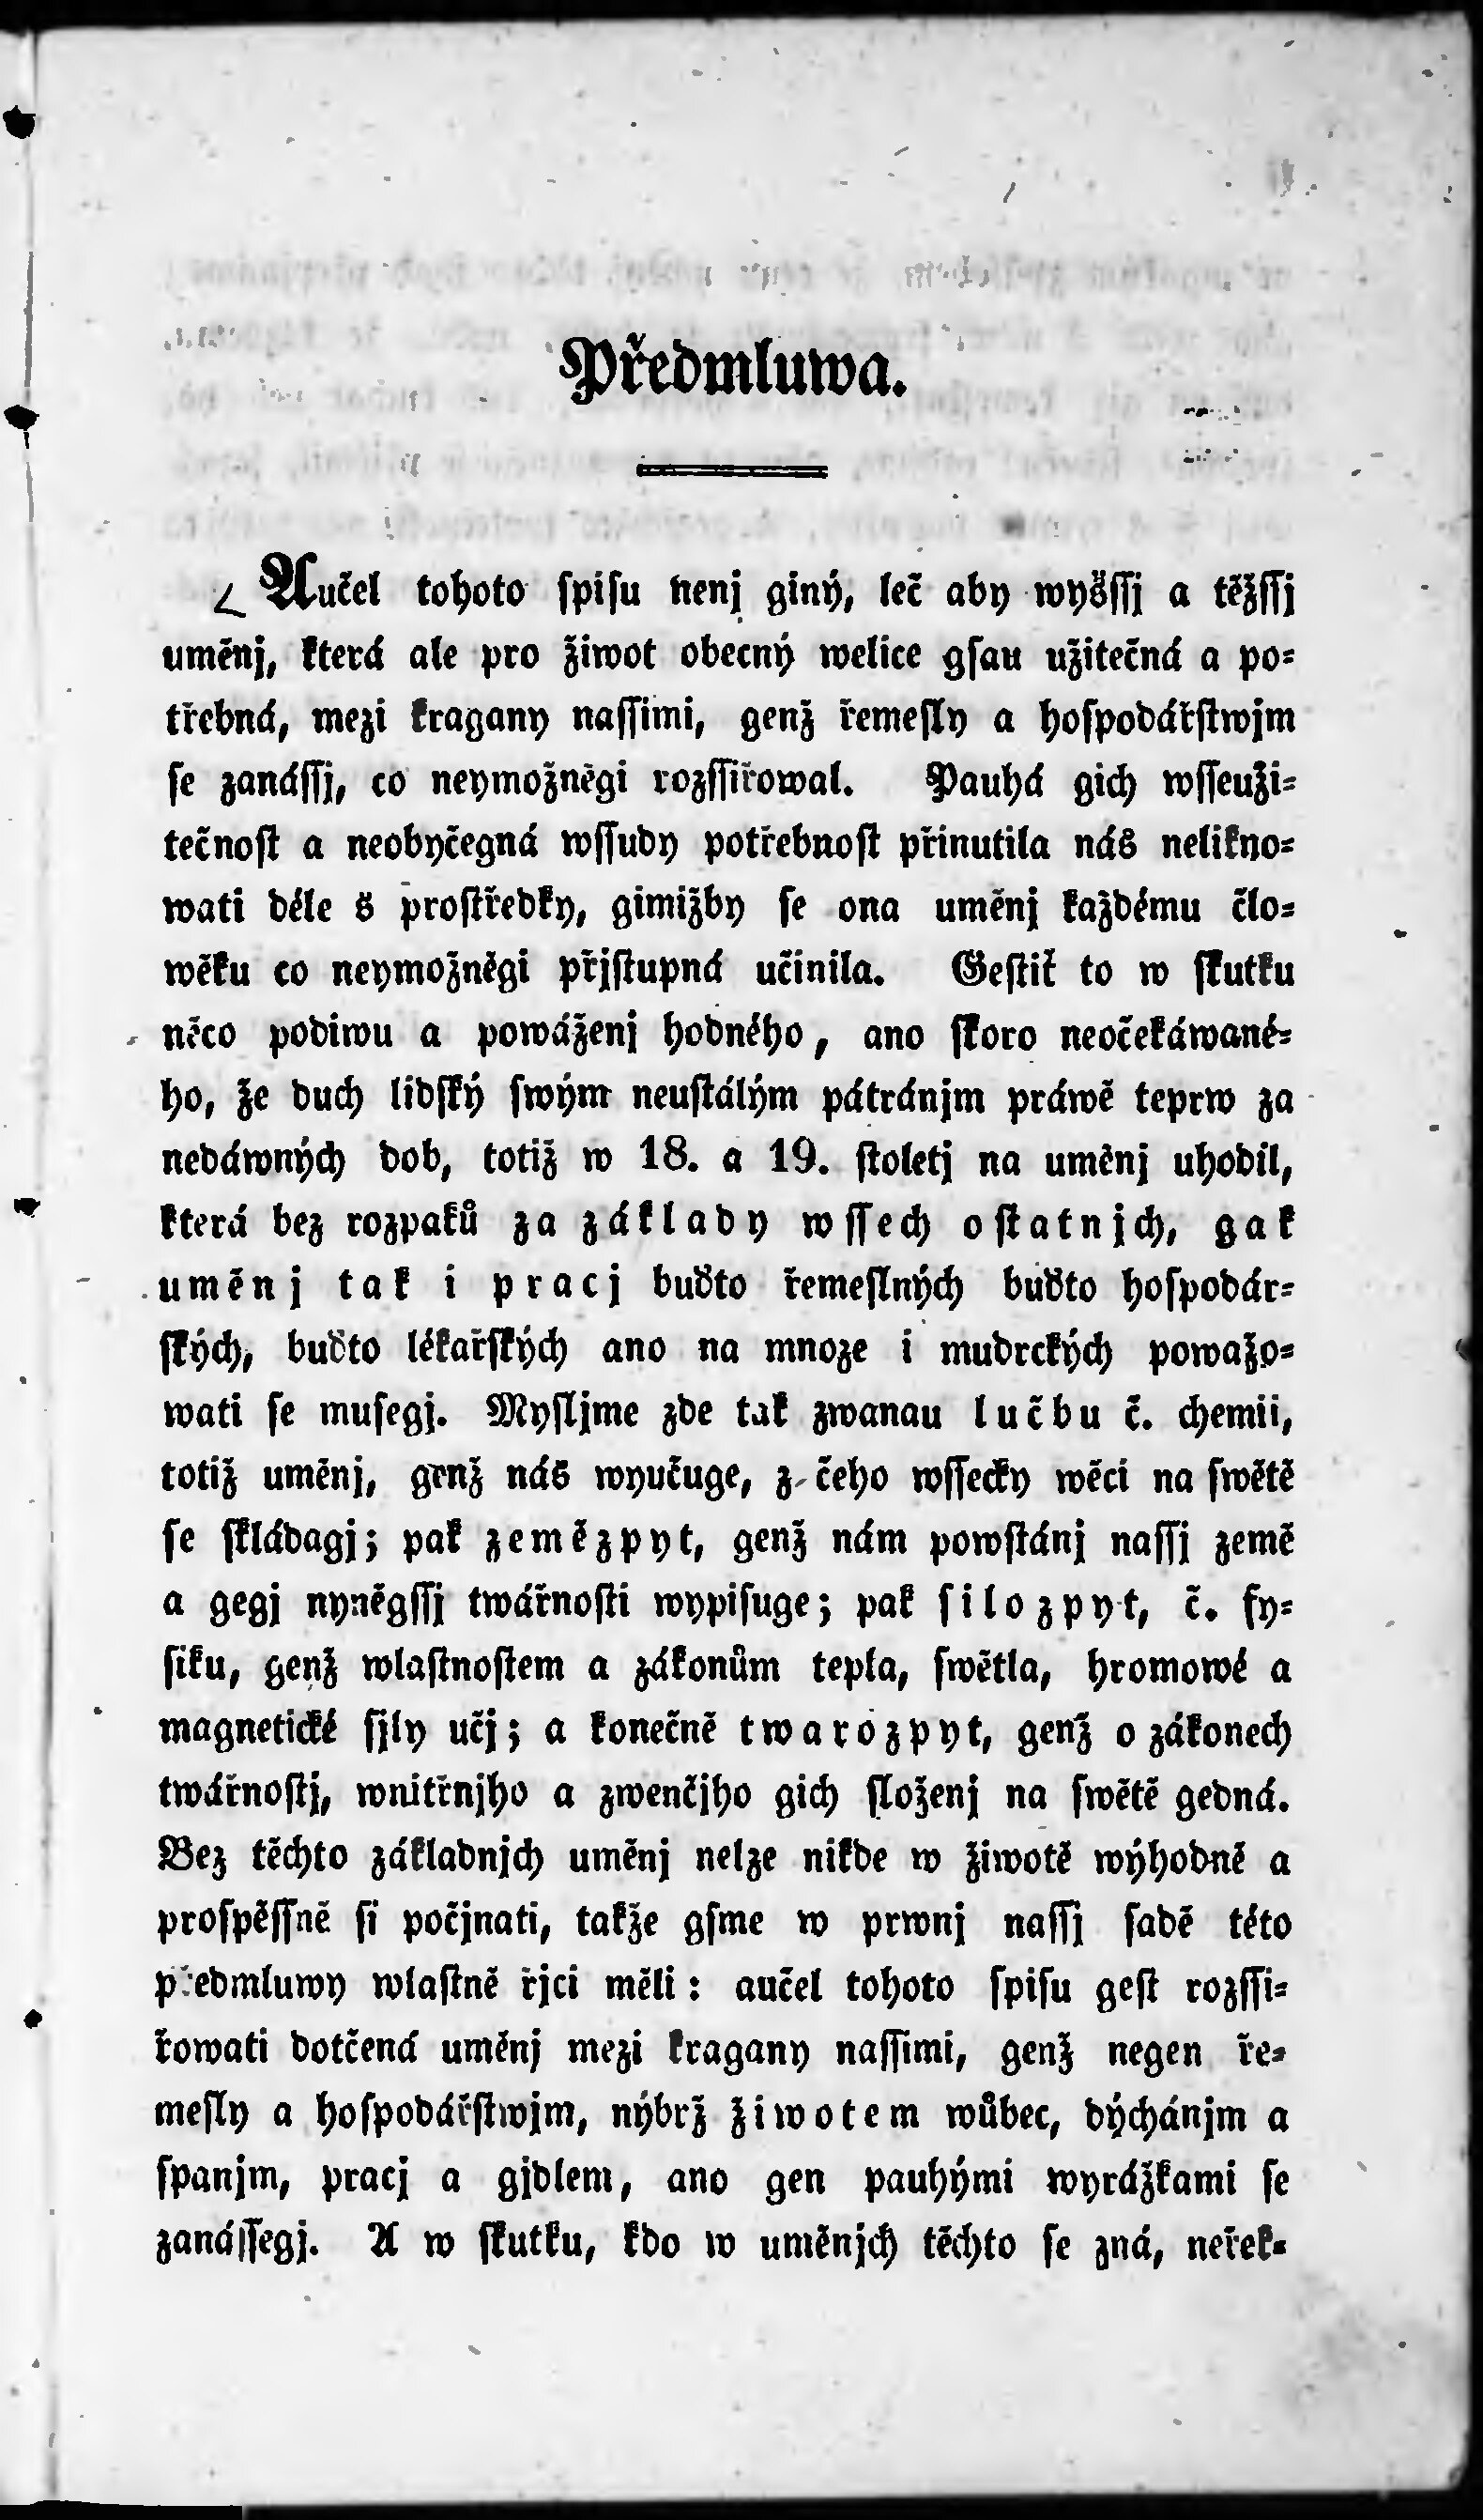 Předmluwa.
Aučel tohoto spisu nenj giný, leč aby wyšssj a těžssj
uměnj, která ale pro žiwot obecný welice gsau užitečná a po=
třebná, mezi kragany nassimi, genž řemesly a hospodářstwjm
se zanássj, co neymožněgi rozssiřowal. Pauhá gich wsseuži=
tečnost a neobyčegná wssudy potřebnost přinutila nás nelikno=
wati déle s prostředky, gimižby se ona uměnj každému člo=
wěku co neymožněgi přjstupná učinila. Gestiť to w skutku
něco podiwu a powáženj hodného, ano skoro neočekáwané=
ho, že duch lidský swým neustálým pátránjm práwě teprw za
nedáwných dob, totiž w 18. a 19. stoletj na uměnj uhodil,
která bez rozpaků za základy wssech ostatnjch, gak
uměnj tak i pracj buďto řemeslných buďto hospodár=
ských, buďto lékařských ano na mnoze i mudrckých powažo=
wati se musegj. Mysljme zde tak zwanau lučbu č. chemii,
totiž uměnj, genž nás wyučuge, z čeho wssecky wěci na swětě
se skládagj; pak zemězpyt, genž nám powstánj nassj země
a gegj nyněgssj twářnosti wypisuge; pak silozpyt, č. fy=
siku, genž wlastnostem a zákonům tepla, swětla, hromowé a
magnetické sjly učj; a konečně twarozpyt, genž o zákonech
twářnostj, wnitřnjho a zwenčjho gich složenj na swětě gedná.
Bez těchto základnjch uměnj nelze nikde w žiwotě wýhodně a
prospěssně si počjnati, takže gsme w prwnj nassj sadě této
předmluwy wlastně řjci měli: aučel tohoto spisu gest rozssi=
řowati dotčená uměnj mezi kragany nassimi, genž negen ře=
mesly a hospodářstwjm, nýbrž žiwotem wůbec, dýchánjm a
spanjm, pracj a gjdlem, ano gen pauhými wyrážkami se
zanássegj. A w skutku, kdo w uměnjch těchto se zná, neřek=